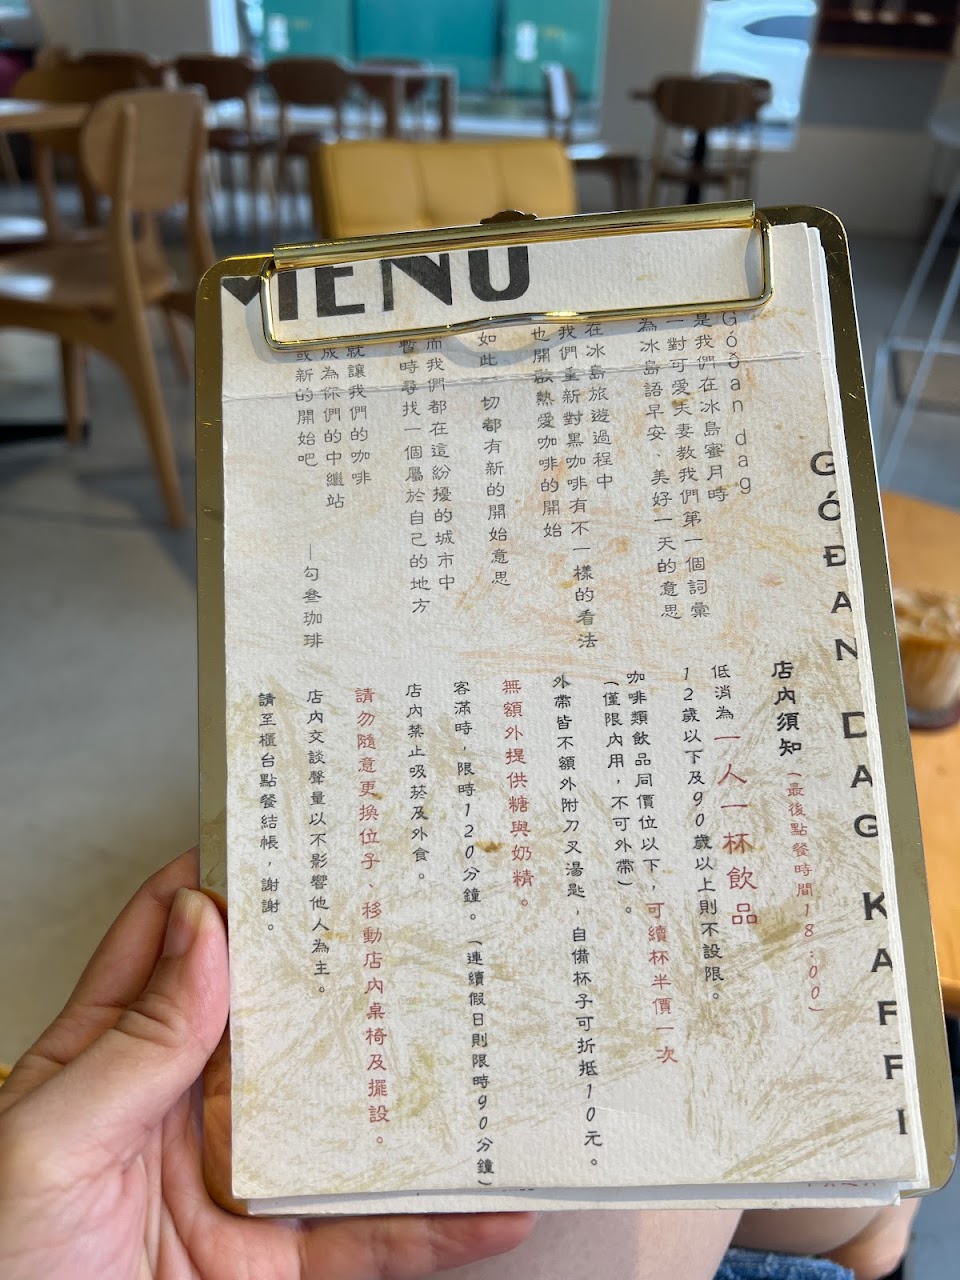 MENU
Góðan dag
是我們在冰島蜜月時
一對可愛夫妻教我們第一個詞彙
為冰島語早安、美好一天的意思
在冰島旅遊過程中
我們重新對黑咖啡有不一樣的看法
也開啟熱愛咖啡的開始
如此一切都有新的開始意思
而我們都在這紛擾的城市中
暫時尋找一個屬於自己的地方
就讓我們的咖啡
成為你們的中繼站
或新的開始吧
—勾叁珈琲
GÓÐAN DAG KAFFI
店內須知(最後點餐時間18:00)
低消為一人一杯飲品
12歲以下及90歲以上則不設限。
咖啡類飲品同價位以下，可續杯半價一次
(僅限內用，不可外帶)。
外帶皆不額外附刀叉湯匙，自備杯子可折抵10元。
無額外提供糖與奶精。
客滿時，限時120分鐘。(連續假日則限時90分鐘)
店內禁止吸菸及外食。
請勿隨意更換位子、移動店內桌椅及擺設。
店內交談聲量以不影響他人為主。
請至櫃台點餐結帳，謝謝。